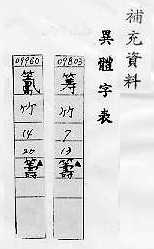 補充資料
異體字表
09803
筹
竹
7
13
籌▲
09960
竹
14
20
籌▲